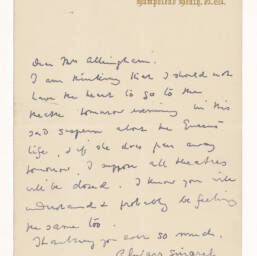 Hampstead Heath, N.W.
Dear Mrs Allingham.
I am thinking that I should not
have the heart to go to the
theatre tomorrow evening in this
sad suspense about the Queen's
life, & if she does pass away
tomorrow, I suppose all theatres
will be closed. I know you will
understand & probably be feeling
the same too.
Thanking you ever so much.